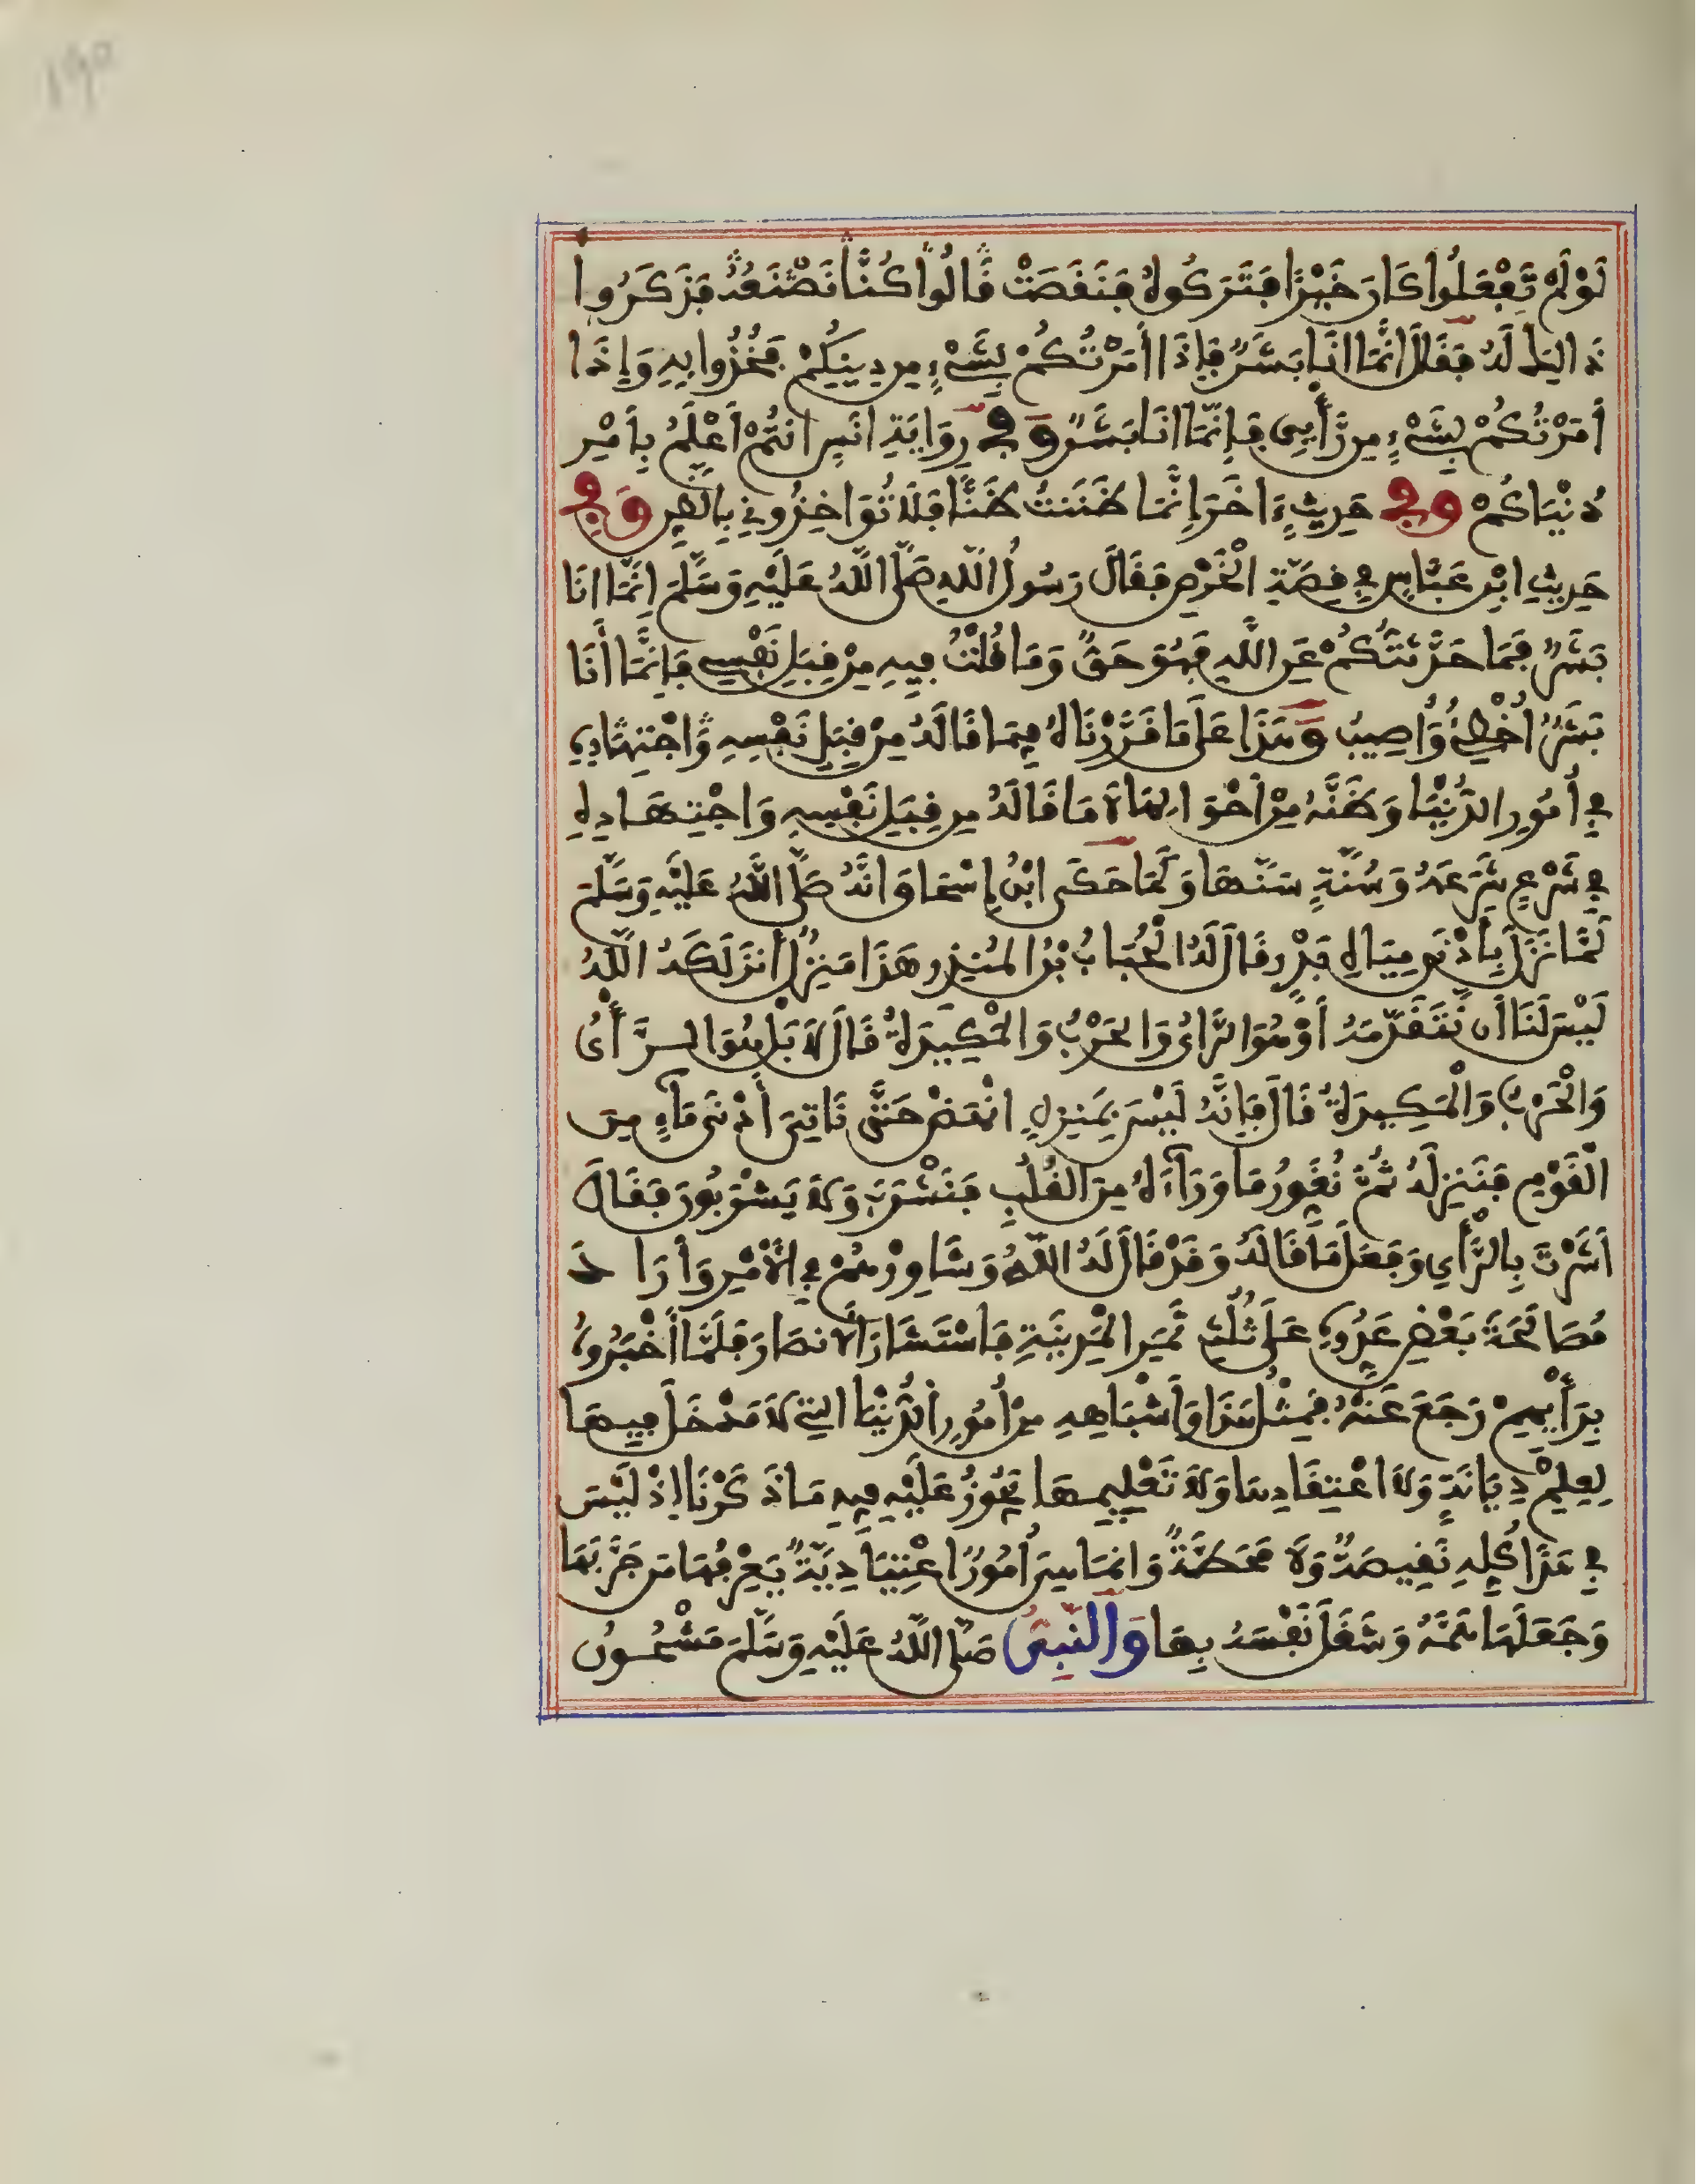 ١٩٥
لَوْ لَمْ تَفْعَلُوا كَانَ خَيْرًا فَتَرَكُوهُ فَنَفَصَتْ قَالُوا كُنَّا نَصْنَعُهُ فَذَكَرُوا
ذَالِكَ لَهُ فَقَالَ إِنَّمَا أَنَا بَشَرٌ فَإِذَا أَمَرْتُكُمْ بِشَيْءٍ مِن دِينِكُمْ فَخُذُوا بِهِ وَإِذَا
أَمَرْتُكُمْ بِشَيْءٍ مِن رَّأْيِي فَإِنَّمَا أَنَا بَشَرٌ وَفِي رِوَايَةِ أَنَسٍ أَنْتُمْ أَعْلَمُ بِأَمْرِ
دُنْيَاكُمْ وَفِي حَدِيثٍ ءَاخَرَ إِنَّمَا ظَنَنتُ ظَنًّا فَلَا تُوَاخِذُونِي بِالظَّنِّ وَفِي
حَدِيثِ ابْنِ عَبَّاسٍ فِي قِصَّةِ الْخَرْصِ فَقَالَ رَسُولُ اللَّهِ صَلَّى اللَّهُ عَلَيْهِ وَسَلَّمَ إِنَّمَا أَنَا
بَشَرٌ فَمَا حَدَّثْتُكُمْ عَنِ اللَّهِ فَهُوَ حَقٌّ وَمَا قُلْتُ فِيهِ مِنْ قِبَلِ نَفْسِي فَإِنَّمَا أَنَا
بَشَرٌ أُخْطِئُ وَأُصِيبُ وَهَذَا عَلَى مَا قَرَّرْنَاهُ فِيمَا قَالَهُ مِنْ قِبَلِ نَفْسِهِ وَاجْتِهَادِهِ
فِي أُمُورِ الدُّنْيَا وَظَنِّهِ مِنْ أَحْوَالِهَا لَا مَا قَالَهُ مِن قِبَلِ نَفْسِهِ وَاجْتِهَادِهِ
فِي شَرْعٍ شَرَعَهُ وَسُنَّةٍ سَنَّهَا وَكَمَا حَكَى ابْنُ إِسْحَاقَ أَنَّهُ صَلَّى اللَّهُ عَلَيْهِ وَسَلَّمَ
لَمَّا نَزَلَ بِأَدْنَى مِيَاهِ بَدْرٍ قَالَ لَهُ الْحُبَابُ بْنُ الْمُنْذِرِ هَذَا مَنْزِلٌ أَنْزَلَكَهُ اللَّهُ
لَيْسَ لَنَا أَن نَّتَقَدَّمَهُ أَوْ هُوَ الرَّأْيُ وَالْحَرْبُ وَالْمَكِيدَةُ قَالَ لَا بَلْ هُوَ الرَّأْيُ
وَالْحَرْبُ وَالْمَكِيدَةُ قَالَ فَإِنَّهُ لَيْسَ بِمَنْزِلٍ انْهَضْ حَتَّى نَاتِيَ أَدْنَى مَاءٍ مِنَ
الْقَوْمِ فَنَنْزِلَهُ ثُمَّ نُغَوِّرُ مَا وَرَاءَهُ مِنَ الْقُلُبِ فَنَشْرَبَ وَلَا يَشْرَبُونَ فَقَالَ
أَشَرْتَ بِالرَّأْيِ وَفَعَلَ مَا قَالَهُ وَقَدْ قَالَ لَهُ اللَّهُ وَشَاوِرْهُمْ فِي الْأَمْرِ وَأَرَادَ
مُصَالَحَةَ بَعْضِ عَدُوِّهِ عَلَى ثُلُثِ ثَمَرِ الْمَدِينَةِ فَاسْتَشَارَ الْأَنصَارَ فَلَمَّا أَخْبَرُوهُ
بِرَأْيِهِمْ رَجَعَ عَنْهُ فَمِثْلُ هَذَا وَأَشْبَاهِهِ مِنْ أُمُورِ الدُّنْيَا الَّتِي لَا مَدْخَلَ فِيهَا
لِعِلْمِ دِيَانَةٍ وَلَا اعْتِقَادِهَا وَلَا تَعْلِيمِهَا يَجُوزُ عَلَيْهِ فِيهِ مَا ذَكَرْنَا إِذْ لَيْسَ
فِي هَذَا كُلِّهِ نَقِيصَةٌ وَلَا مَحَطَّةٌ وَإِنَّمَا هِيَ أُمُورٌ اعْتِيَادِيَّةٌ يَعْرِفُهَا مَن جَرَّبَهَا
وَجَعَلَهَا هَمَّهُ وَشَغَلَ نَفْسَهُ بِهَا وَالنَّبِيُّ صَلَّى اللَّهُ عَلَيْهِ وَسَلَّمَ مَشْحُونُ